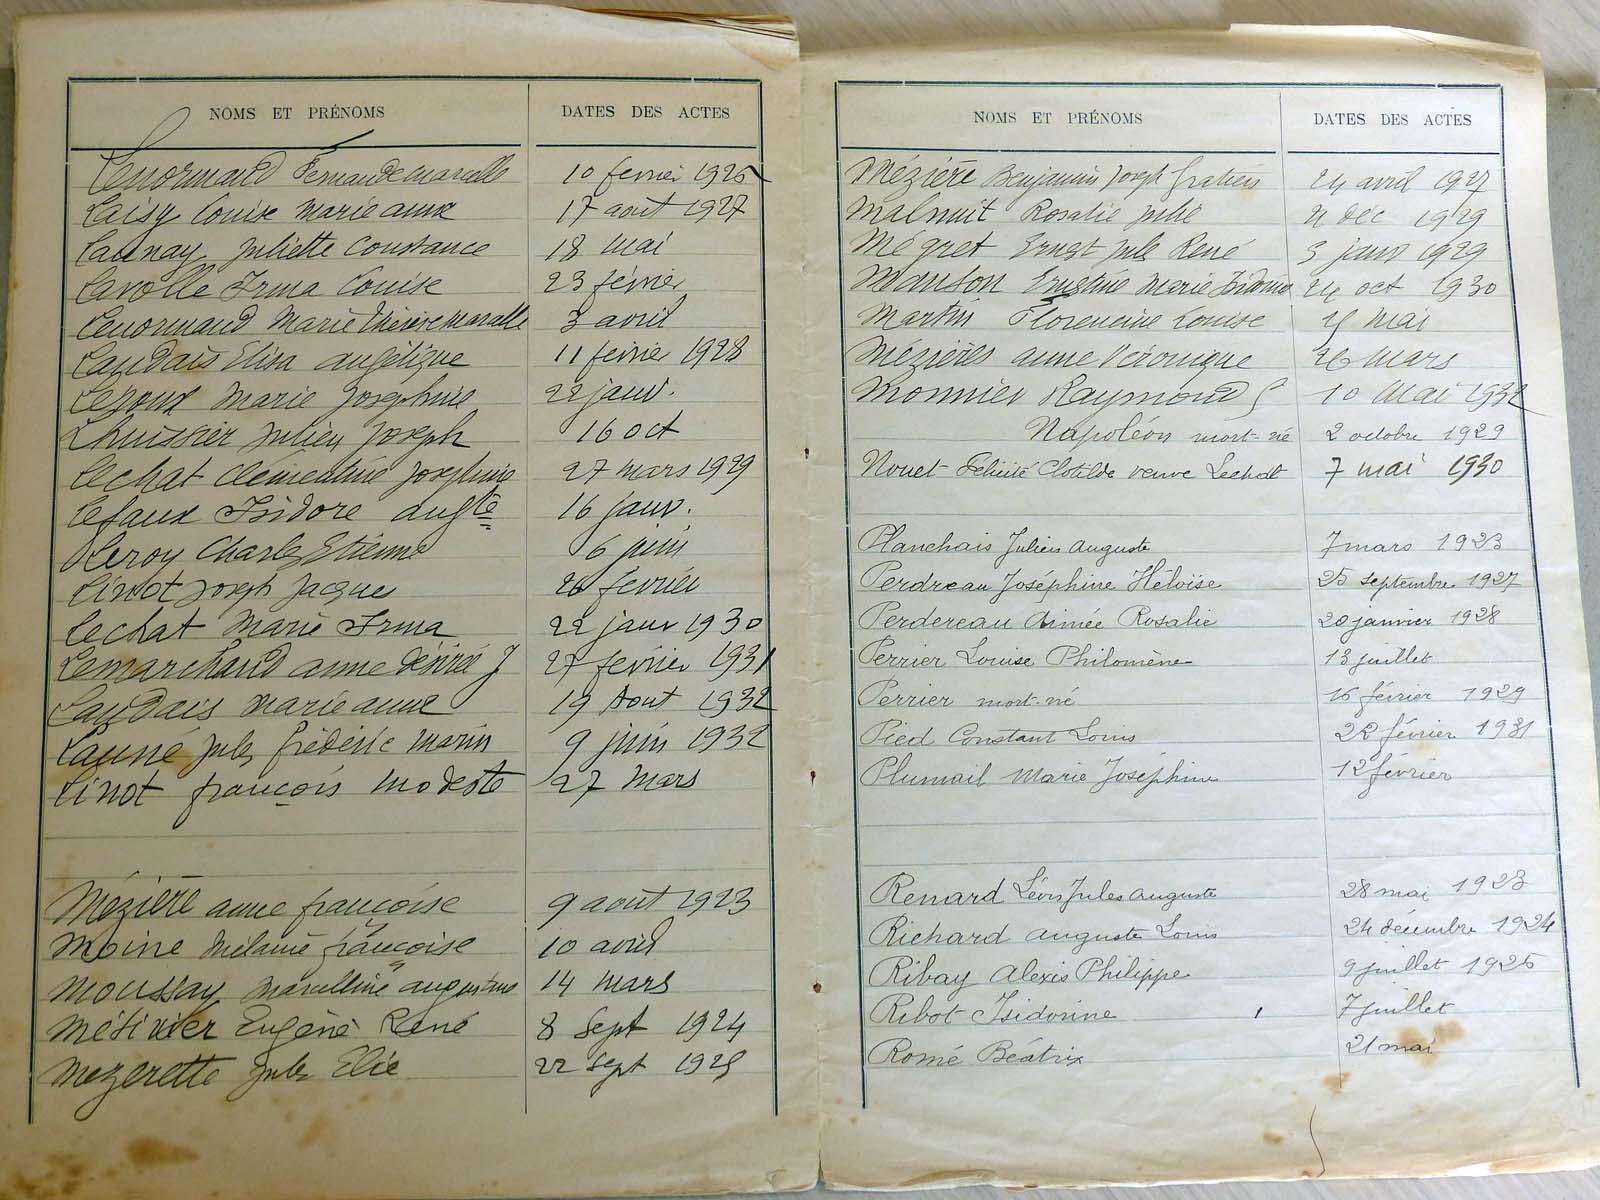 NOMS ET PRÉNOMS DATES DES ACTES
Lenormand Fernande Marcelle 10 fevrier 1926
Laisy Louise Marie anne 17 août 1927
Launay Juliette Constance 18 mai
Lavolle Irma Louise 23 février
Lenormand Marie Thérèse Marcelle 3 avril
Landais Elisa angélique 11 fevrier 1928
Leroux Marie Josephine 22 janv.
Lhuissier Julien Joseph 16 oct
Lechat Clémentine Josephine 27 mars 1929
Lefaux Isidore augte 16 janv.
Leroy Charles Etienne 6 juin
Linot Joseph Jacque 26 février
Lechat Marie Irma 22 janv 1930
Lemarchand anne désirée J 27 fevrier 1931
Landais Marie anne 19 Aout 1932
Launé Jules frédéric Marin 9 juin 1932
Linot françois modeste 27 Mars
Mézière anne françoise 9 août 1923
Moine Mélanie françoise 10 avril
Moussay Marcelline augustine 14 mars
Métivier Eugène René 8 Sept 1924
Mezerette Jules Elie 22 Sept 1925
NOMS ET PRÉNOMS DATES DES ACTES
Mézière Benjamin Joseph Gratien 24 avril 1927
Malnuit Rosalie Julie 21 déc 1929
Mégret Ernest Jules René 3 janv 1929
Manson Ernestine Marie 24 oct 1930
Martin Florencine Louise 15 mai
Mézières anne Véronique 26 mars
Monnier Raymond 10 Mai 1932
Napoléon mort-né 2 octobre 1929
Nouet Félicité Clotilde veuve Lechat 7 mai 1930
Planchais Julien Auguste 7 mars 1923
Perdreau Joséphine Héloïse 25 septembre 1927
Perdereau Aimée Rosalie 20 janvier 1928
Perrier Louise Philomène 13 juillet
Perrier mort-né 16 février 1929
Pied Constant Louis 22 février 1931
Plumail Marie Joséphine 12 février
Renard Lévis Jules Auguste 28 mai 1923
Richard Auguste Louis 24 décembre 1924
Ribay Alexis Philippe 9 juillet 1926
Ribot Isidorine 7 juillet
Romé Béatrix 21 mai